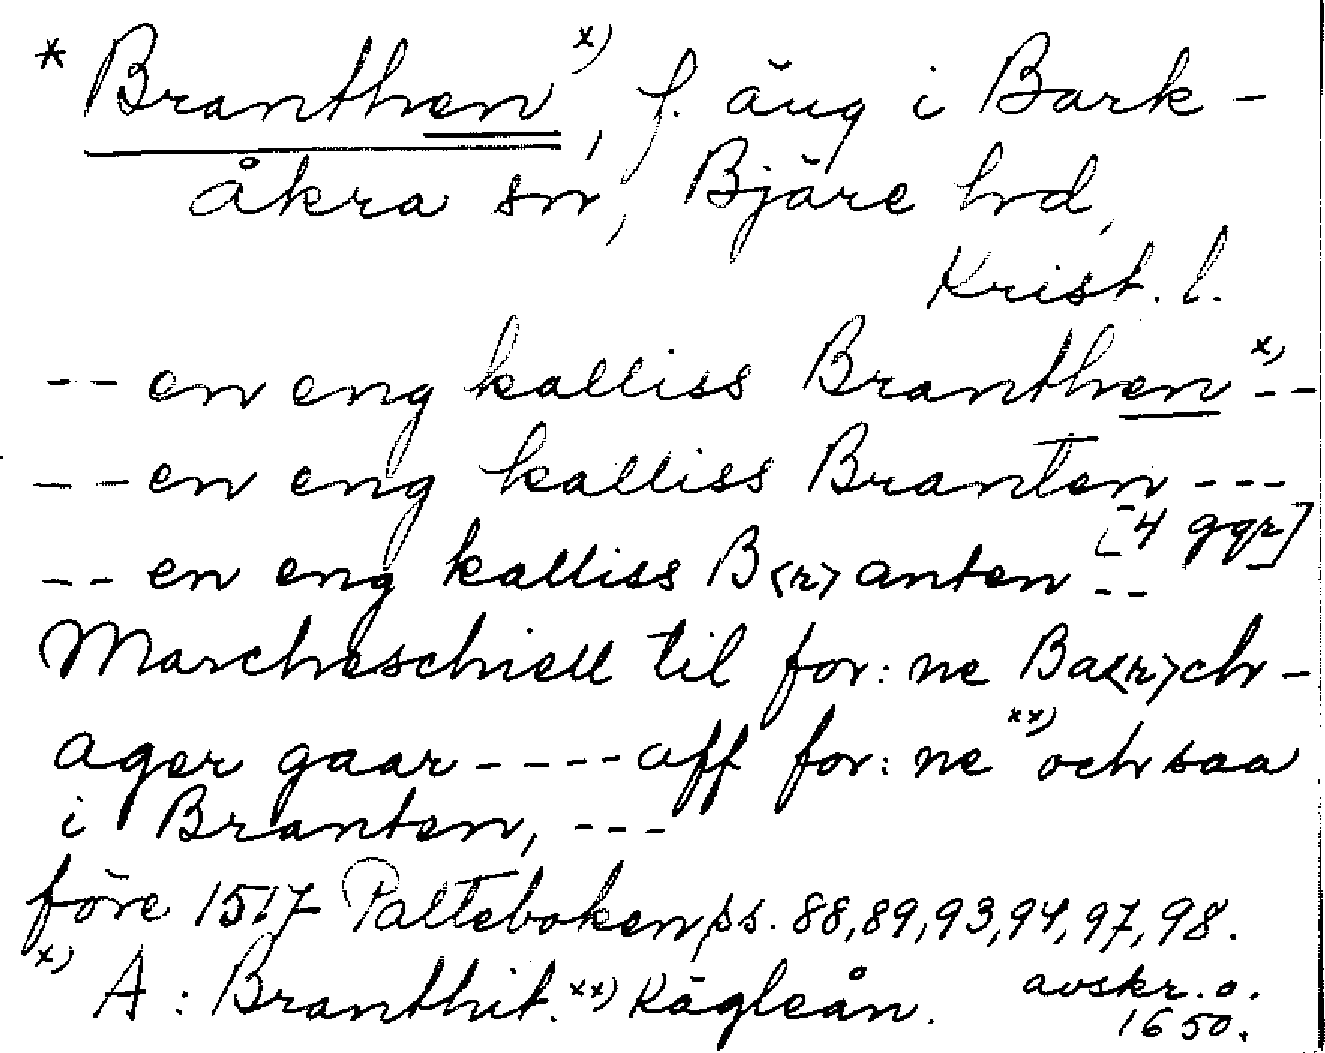 * Branthen x), f. äng i Bark-
åkra sn, Bjäre hd,
Krist. l.
-- en eng kalliss Branthen x) --
-- en eng kalliss Branten ---
[4 ggr]
-- en eng kalliss B<r>anten --
Marcheschiell til for: ne Ba<r>ch-
ager gaar ---- aff for: ne xx) och saa
i Branten, ---
före 1517 Palteboken ss. 88, 89, 93, 94, 97, 98.
x) A: Branthit. xx) Kägleån. avskr. o.
1650.